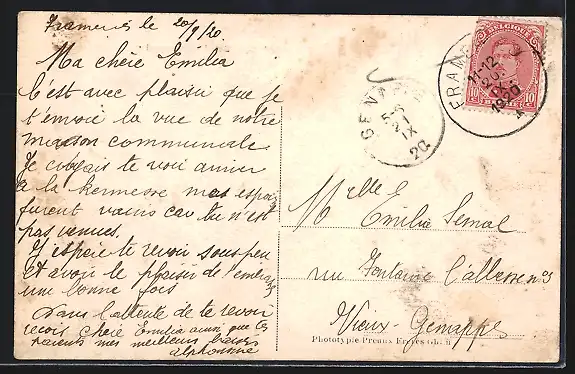 Frameries le 20/9/20
Ma chère Emilia
C'est avec plaisir que je
t'envoie la vue de notre
maison communale
Je croyais te voir arriver
a la kermesse mes espoirs
furent vains car tu n'est
pas venues.
J'espère te revoir sous peu
et avoir le plaisir de t'embrasser
une bonne fois
Dans l'attente de te revoir
reçois chère Emilia ainsi que tes
parents mes meilleurs baisers
Alphonsine
BELGIQUE
10 10
FRAM
11-12
20
IX
1920
GENA
5-6
21
IX
20
Melle
Emilia Semal
rue Fontaine l'allesse n°3
Vieux-Genappe
Phototypie Préaux Frères Ghlin